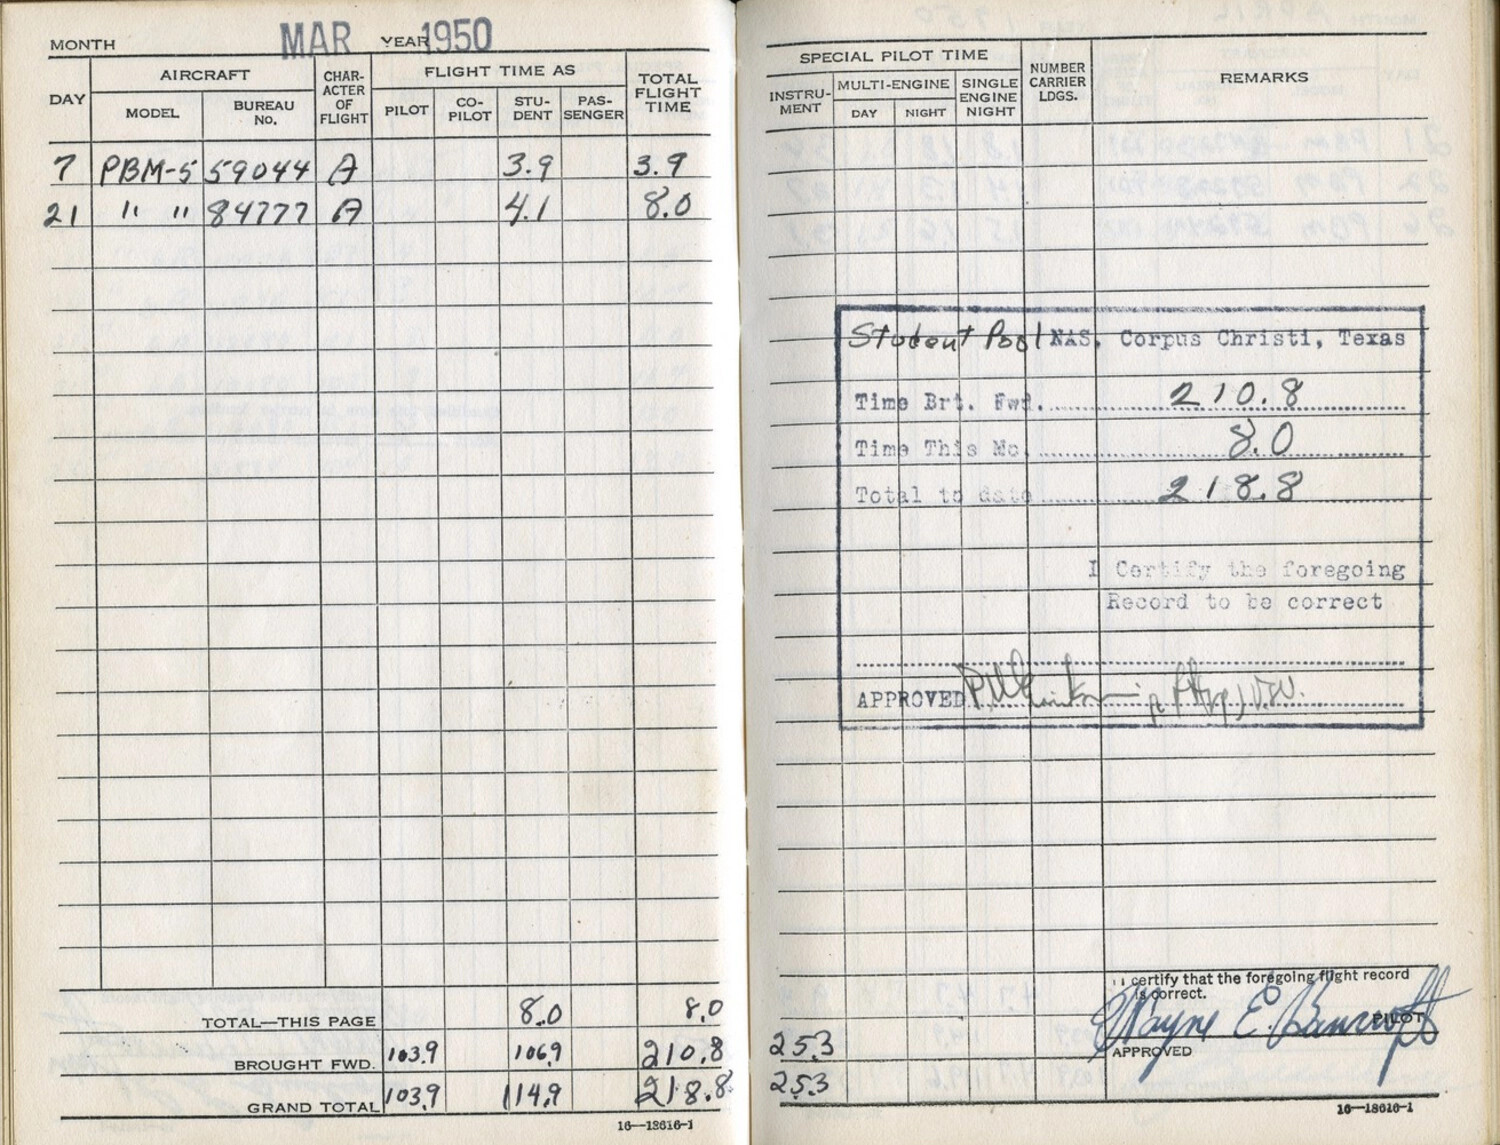 MONTH MAR YEAR 1950
DAY
AIRCRAFT
MODEL
BUREAU NO.
CHAR-ACTER OF FLIGHT
FLIGHT TIME AS
PILOT
CO-PILOT
STU-DENT
PAS-SENGER
TOTAL FLIGHT TIME
7 PBM-5 59044 A 3.9 3.9
21 " " 84777 A 4.1 8.0
TOTAL—THIS PAGE 8.0 8.0
BROUGHT FWD. 103.9 106.9 210.8
GRAND TOTAL 103.9 114.9 218.8
16—18616-1
SPECIAL PILOT TIME
INSTRU-MENT
MULTI-ENGINE
DAY
NIGHT
SINGLE ENGINE NIGHT
NUMBER CARRIER LDGS.
REMARKS
Student Pool NAS, Corpus Christi, Texas
Time Brt. Fwd. 210.8
Time This Mo. 8.0
Total to date 218.8
I Certify the foregoing
Record to be correct
APPROVED
I certify that the foregoing flight record
is correct.
Wayne E. Bancroft
PILOT
25.3
APPROVED
25.3
16—18616-1